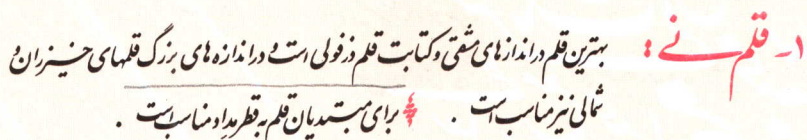 ۱ـ قلم نی : بهترین قلم در اندازهای مشقی و کتابت قلم دزفولی است و در اندازه های بزرگ قلمهای خیزران و
شمالی نیز مناسب است . برای مبتدیان قلم به قطر مداد مناسب است .